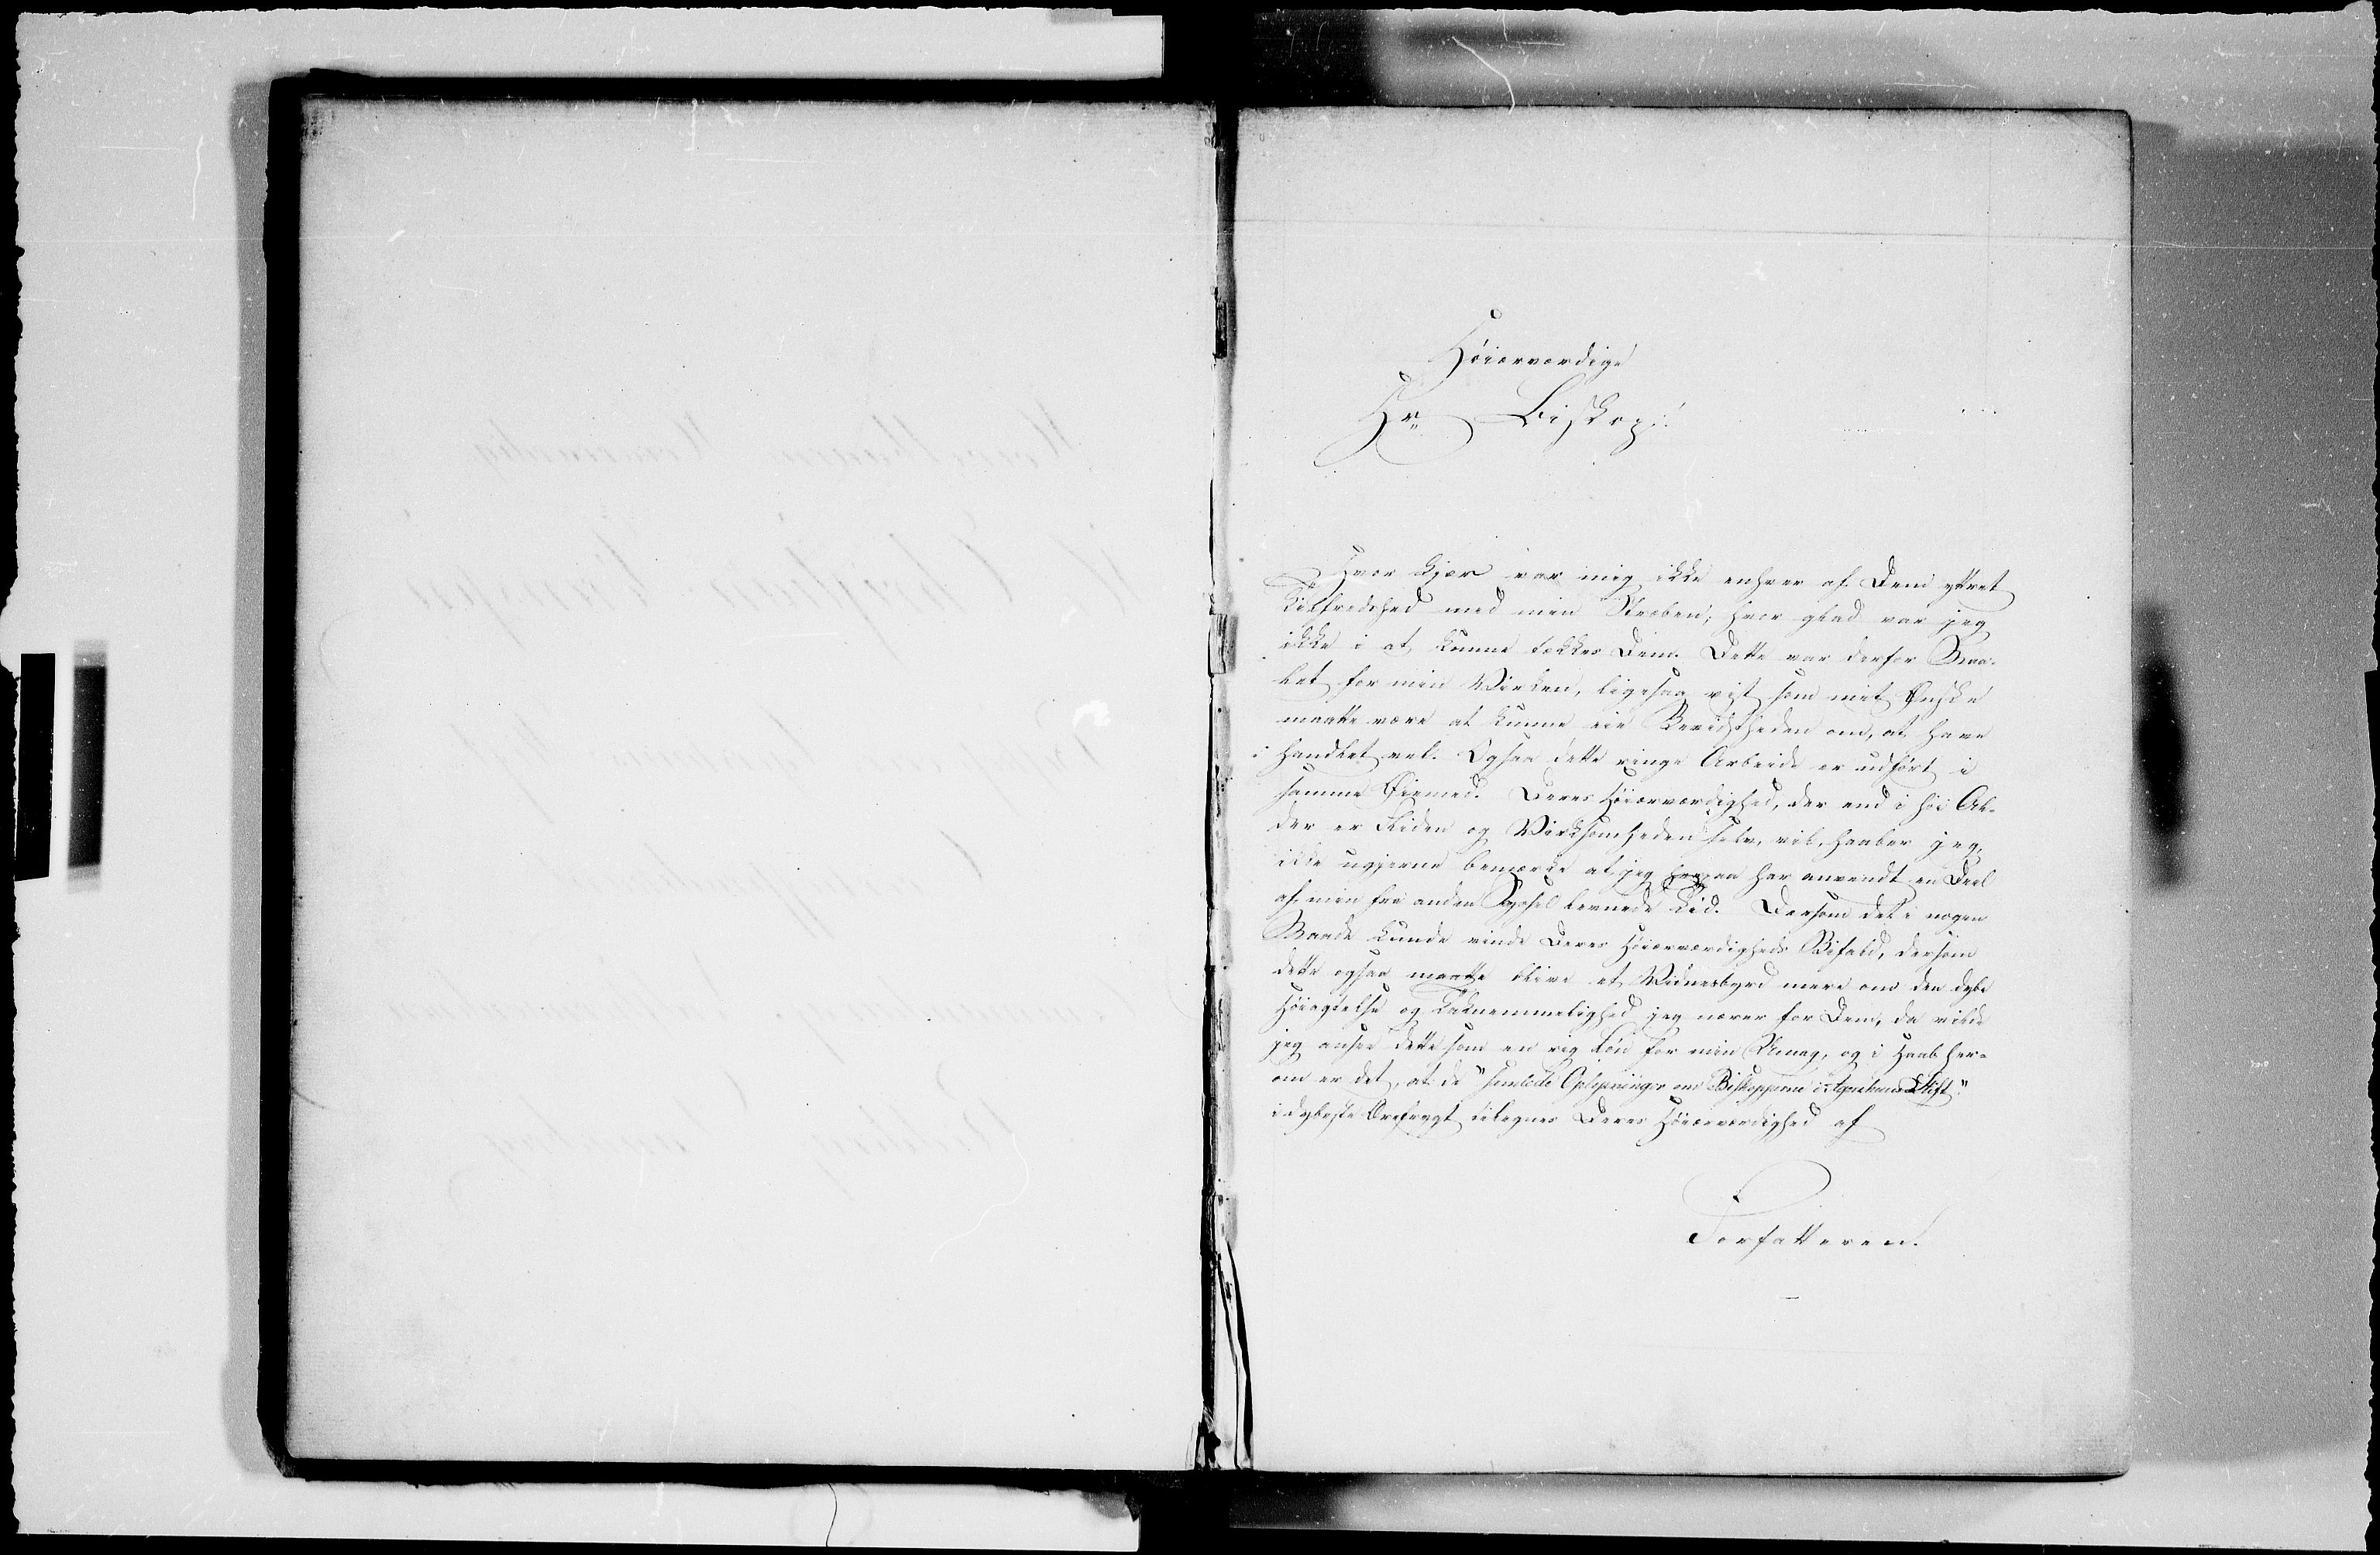 Høiærværdige
Hr. Biskop!
Hvor kjær var mig ikke enhver af Dem yttret
Tilfredshed med min Stræben; hvor glad var jeg
ikke i at kunne tækkes Dem. Dette var derfor Maa-
let for min Virken, ligesaa vist som mit Ønske
maatte være at kunne eie Bevidstheden om, at have
handlet vel. Ogsaa dette ringe Arbeide er udført i
samme Øiemed. Deres Høiærværdighed, der end i høi Al-
der er Fliden og Virksomheden selv, vil, haaber jeg,
ikke ugjerne bemærke at jeg herpaa har anvendt en Deel
af min fra anden Syssel levnede Tid. Dersom det i nogen
Maade kunde vinde Deres Høiærværdigheds Bifald, dersom
dette ogsaa maatte blive et Vidnesbyrd mere om den dybe
Høiagtelse og Taknemmelighed jeg nærer for Dem, da vilde
jeg ansee dette som en rig Løn for min Umag, og i Haab her-
om er det, at de "samlede Oplysninger om Biskopperne i Agershuus Stift"
i dybeste Ærefrygt tilegnes Deres Høiærværdighed af
Forfatteren.